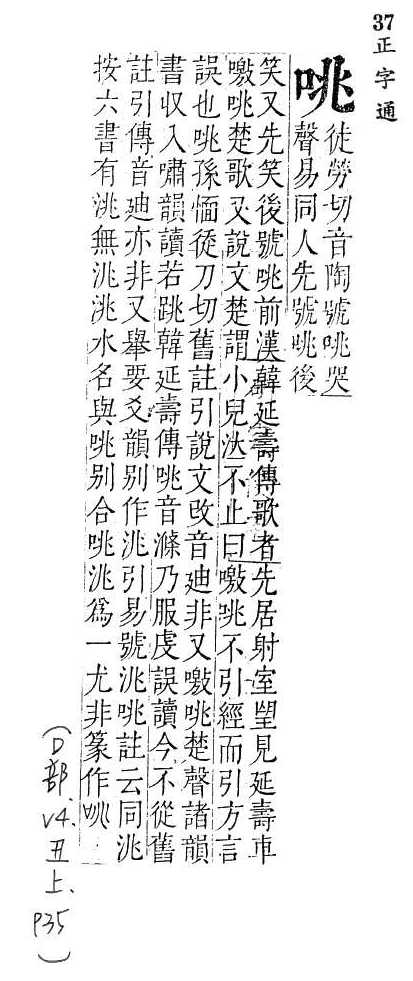 37正字通
咷
徒勞切音陶號咷哭
聲易同人先號咷後
笑又先笑後號咷前漢韓延壽傳歌者先居射室望見延壽車
噭咷楚歌又說文楚謂小兒泣不止曰噭咷不引經而引方言
誤也咷孫愐徒刀切舊註引說文改音迪非又噭咷楚聲諸韻
書収入嘯韻讀若跳韓延壽傳咷音滌乃服虔誤讀今不從舊
註引傳音迪亦非又舉要爻韻別作洮引易號洮咷註云同洮
按六書有洮無洮洮水名與咷別合咷洮爲一尤非篆作咷
(口部、
v4.
丑
上、
P35
)